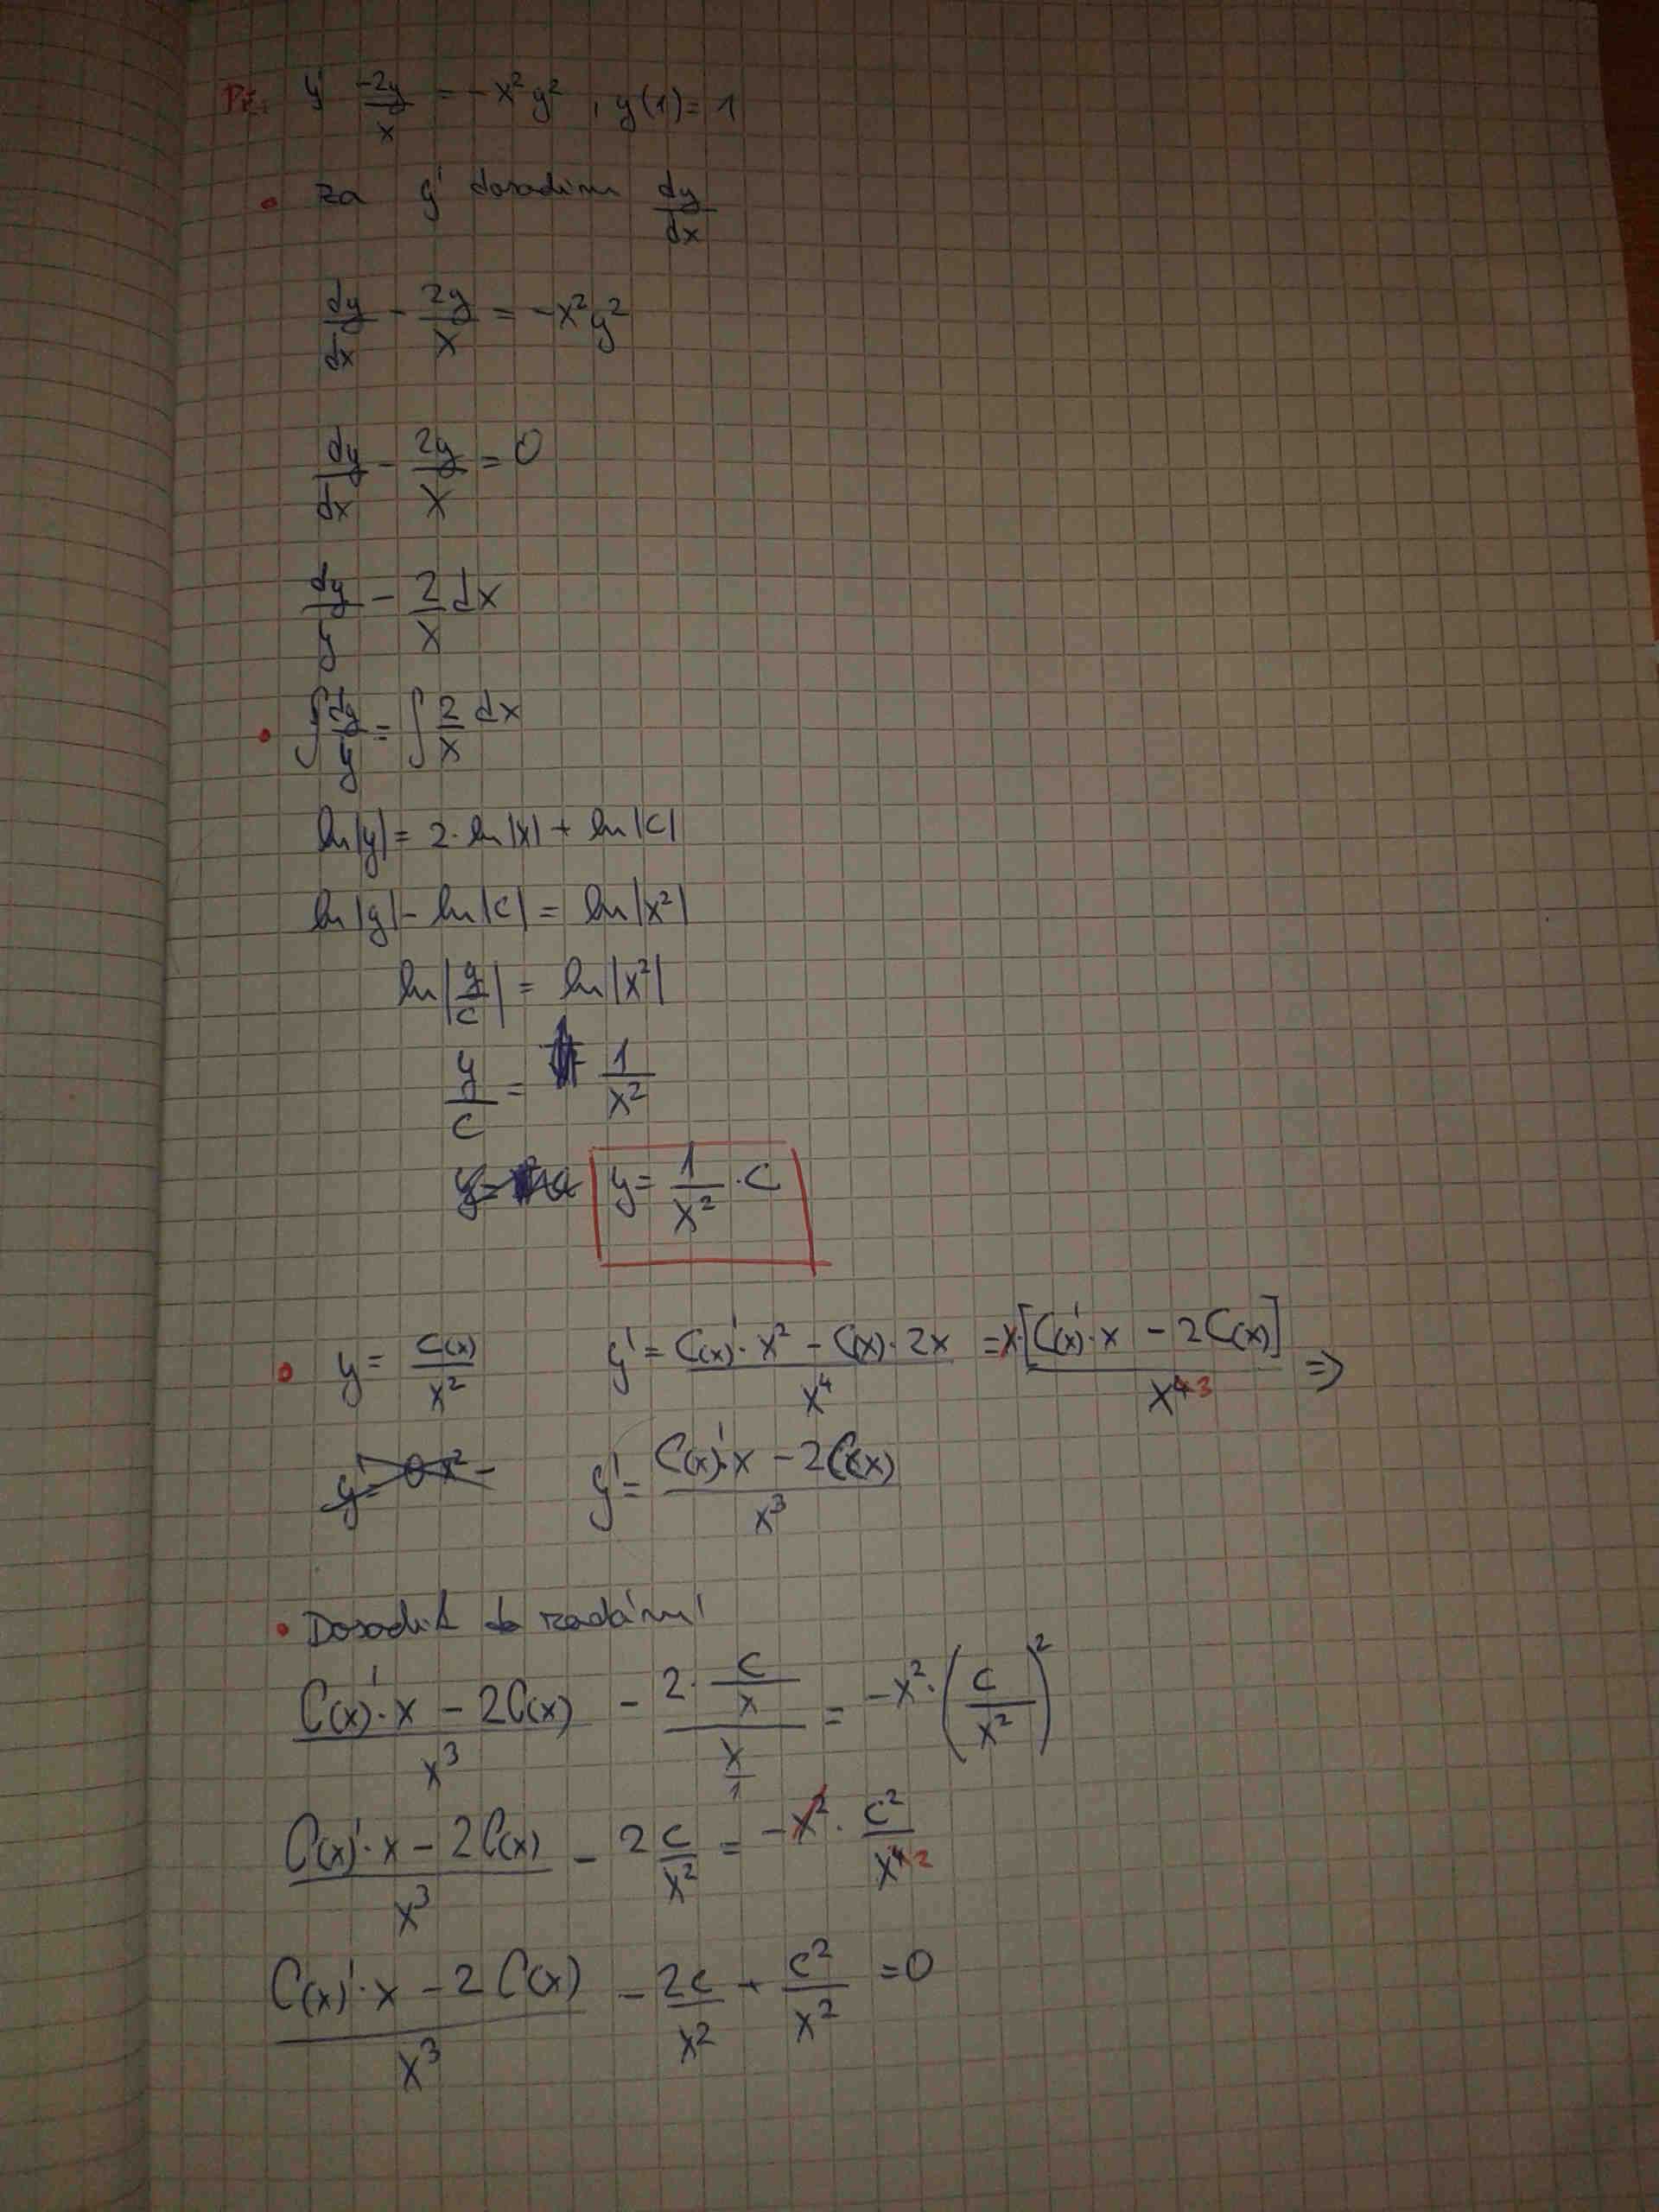 Př. y' -2y/x = -x²y², y(1)=1
• za y' dosadím dy/dx
dy/dx - 2y/x = -x²y²
dy/dx - 2y/x = 0
dy/y - 2/x dx
• ∫ dy/y = ∫ 2/x dx
ln|y| = 2·ln|x| + ln|C|
ln|y| - ln|C| = ln|x²|
ln|y/c| = ln|x²|
y/c = 1/x²
y = 1/x² · C
• y = C(x)/x² y' = (C(x)'·x² - C(x)·2x)/x⁴ = x·[C(x)'·x - 2C(x)]/x⁴³ ⇒
y' = (C(x)'·x - 2C(x))/x³
• Dosadit do zadání
(C(x)'·x - 2C(x))/x³ - (2·c/x)/(x/1) = -x²·(c/x²)²
(C(x)'·x - 2C(x))/x³ - 2 c/x² = -x²·c²/x⁴²
(C(x)'·x - 2C(x))/x³ - 2c/x² + c²/x² = 0